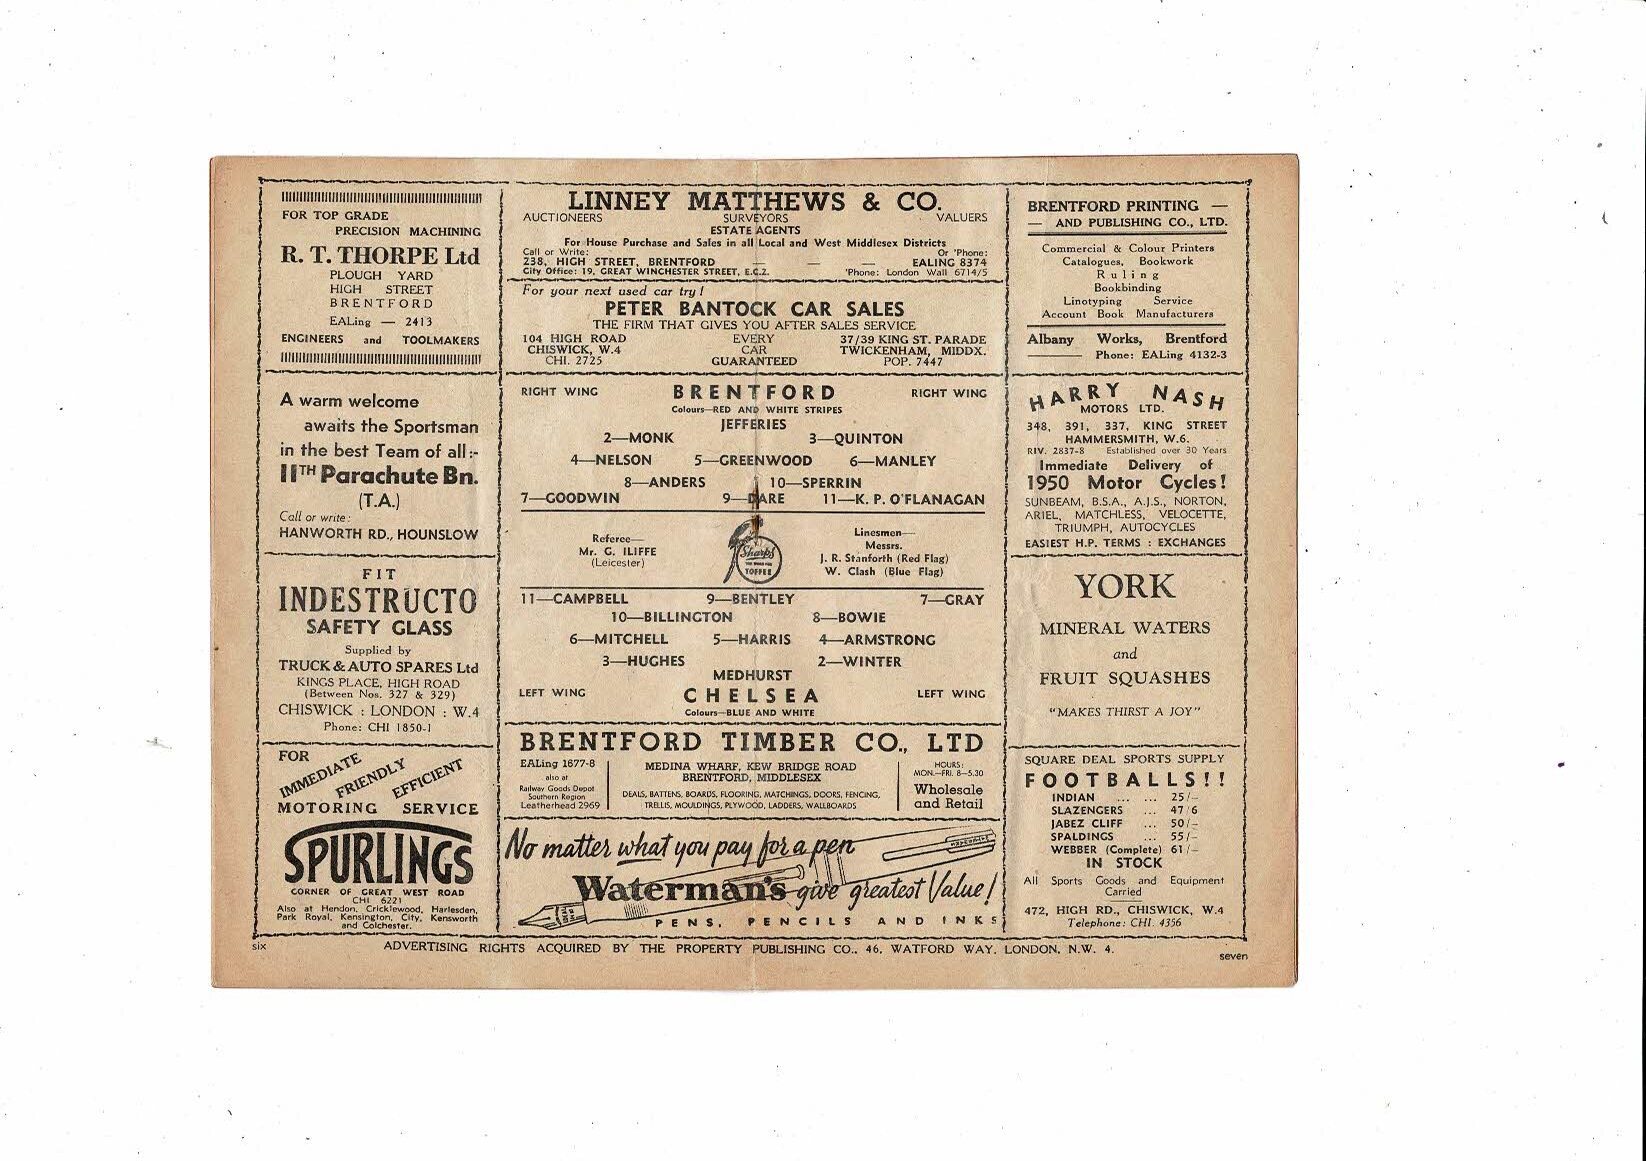 FOR TOP GRADE
PRECISION MACHINING
R. T. THORPE Ltd
PLOUGH YARD
HIGH STREET
BRENTFORD
EALing — 2413
ENGINEERS and TOOLMAKERS
A warm welcome
awaits the Sportsman
in the best Team of all:-
11TH Parachute Bn.
(T.A.)
Call or write:
HANWORTH RD., HOUNSLOW
FIT
INDESTRUCTO
SAFETY GLASS
Supplied by
TRUCK & AUTO SPARES Ltd
KINGS PLACE, HIGH ROAD
(Between Nos. 327 & 329)
CHISWICK : LONDON : W.4
Phone: CHI 1850-1
FOR
IMMEDIATE
FRIENDLY
EFFICIENT
MOTORING SERVICE
SPURLINGS
CORNER OF GREAT WEST ROAD
CHI 6221
Also at Hendon, Cricklewood, Harlesden,
Park Royal, Kensington, City, Kensworth
and Colchester.
LINNEY MATTHEWS & CO.
AUCTIONEERS SURVEYORS VALUERS
ESTATE AGENTS
For House Purchase and Sales in all Local and West Middlesex Districts
Call or Write: Or 'Phone:
238, HIGH STREET, BRENTFORD — — — EALING 8374
City Office: 19, GREAT WINCHESTER STREET, E.C.2. 'Phone: London Wall 6714/5
For your next used car try!
PETER BANTOCK CAR SALES
THE FIRM THAT GIVES YOU AFTER SALES SERVICE
104 HIGH ROAD EVERY 37/39 KING ST. PARADE
CHISWICK, W.4 CAR TWICKENHAM, MIDDX.
CHI. 2725 GUARANTEED POP. 7447
RIGHT WING BRENTFORD RIGHT WING
Colours—RED AND WHITE STRIPES
JEFFERIES
2—MONK 3—QUINTON
4—NELSON 5—GREENWOOD 6—MANLEY
8—ANDERS 10—SPERRIN
7—GOODWIN 9—DARE 11—K. P. O'FLANAGAN
Referee—
Mr. G. ILIFFE
(Leicester)
Sharps
THE WORD FOR
TOFFEE
Linesmen—
Messrs.
J. R. Stanforth (Red Flag)
W. Clash (Blue Flag)
11—CAMPBELL 9—BENTLEY 7—GRAY
10—BILLINGTON 8—BOWIE
6—MITCHELL 5—HARRIS 4—ARMSTRONG
3—HUGHES 2—WINTER
MEDHURST
LEFT WING CHELSEA LEFT WING
Colours—BLUE AND WHITE
BRENTFORD TIMBER CO., LTD
EALing 1677-8
also at
Railway Goods Depot
Southern Region
Leatherhead 2969
MEDINA WHARF, KEW BRIDGE ROAD
BRENTFORD, MIDDLESEX
DEALS, BATTENS, BOARDS, FLOORING, MATCHINGS, DOORS, FENCING,
TRELLIS, MOULDINGS, PLYWOOD, LADDERS, WALLBOARDS
HOURS:
MON.—FRI. 8—5.30
Wholesale
and Retail
No matter what you pay for a pen
Waterman's give greatest Value!
PENS, PENCILS AND INKS
BRENTFORD PRINTING —
— AND PUBLISHING CO., LTD.
Commercial & Colour Printers
Catalogues, Bookwork
Ruling
Bookbinding
Linotyping Service
Account Book Manufacturers
Albany Works, Brentford
Phone: EALing 4132-3
HARRY NASH
MOTORS LTD.
348, 391, 337, KING STREET
HAMMERSMITH, W.6.
RIV. 2837-8 Established over 30 Years
Immediate Delivery of
1950 Motor Cycles!
SUNBEAM, B.S.A., A.J.S., NORTON,
ARIEL, MATCHLESS, VELOCETTE,
TRIUMPH, AUTOCYCLES
EASIEST H.P. TERMS : EXCHANGES
YORK
MINERAL WATERS
and
FRUIT SQUASHES
"MAKES THIRST A JOY"
SQUARE DEAL SPORTS SUPPLY
FOOTBALLS!!
INDIAN ... ... 25/-
SLAZENGERS ... 47/6
JABEZ CLIFF ... 50/-
SPALDINGS ... 55/-
WEBBER (Complete) 61/-
IN STOCK
All Sports Goods and Equipment
Carried
472, HIGH RD., CHISWICK, W.4
Telephone: CHI. 4356
six
ADVERTISING RIGHTS ACQUIRED BY THE PROPERTY PUBLISHING CO., 46, WATFORD WAY, LONDON, N.W. 4.
seven